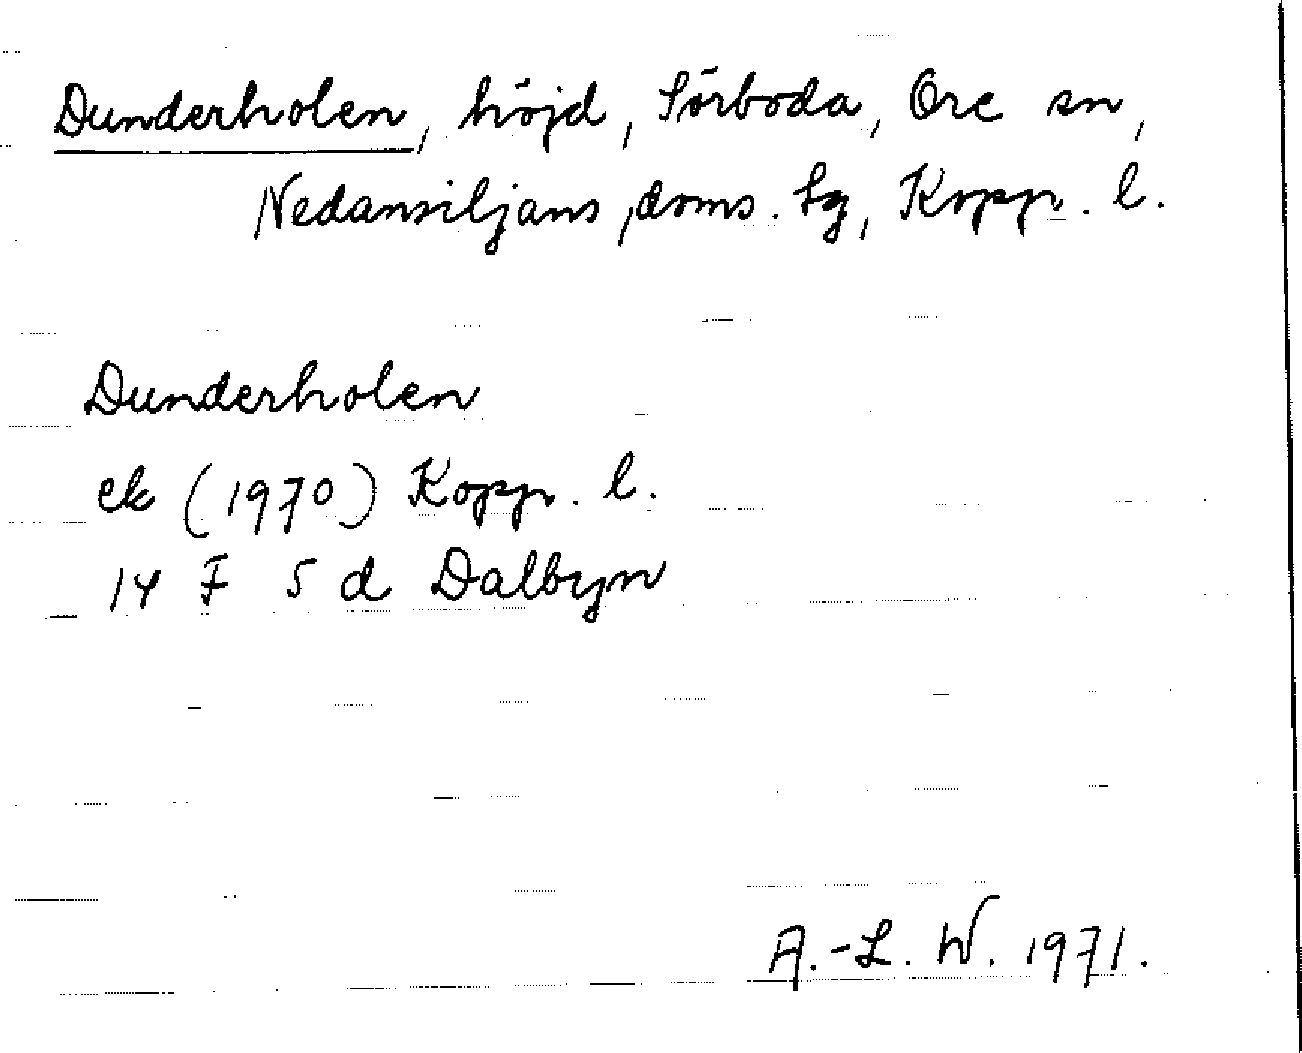 Dunderholen, höjd, Sörboda, Ore sn,
Nedansiljans doms. sg, Kopp. l.
Dunderholen
ek (1970) Kopp. l.
14 F 5 d Dalbyn
A.-L. W. 1971.